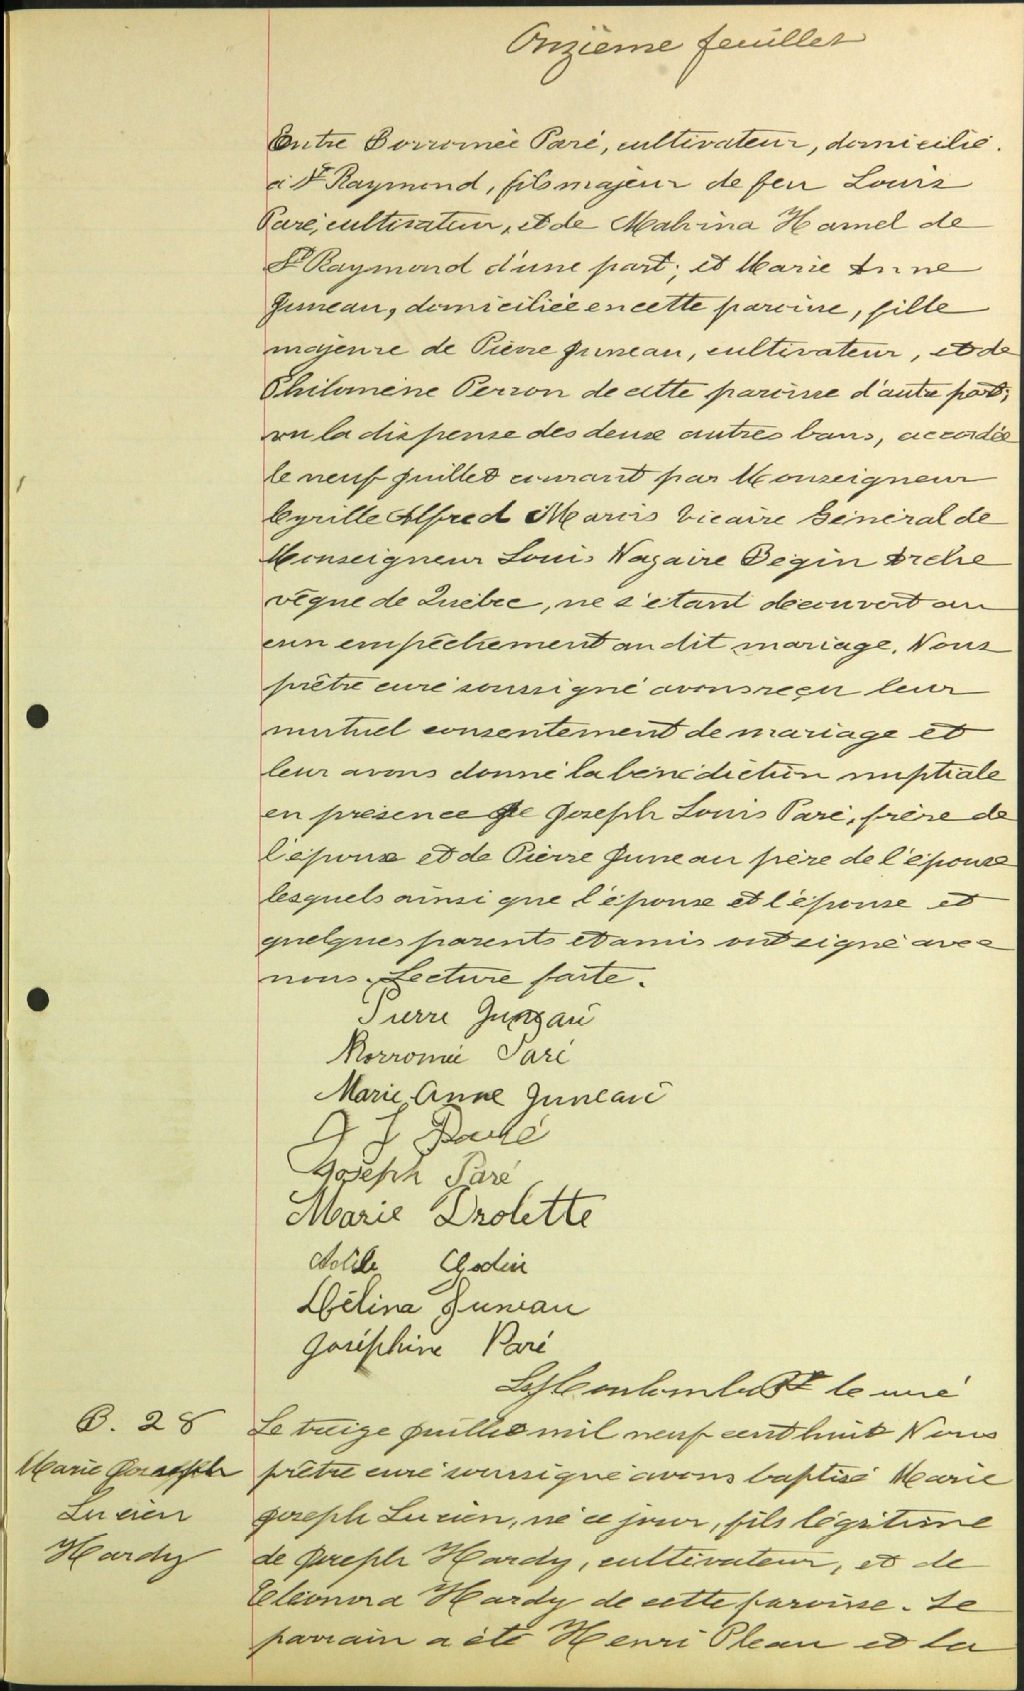 Onzième feuillet
Entre Borromée Paré, cultivateur, domicilié
à St Raymond, fils majeur de feu Louis
Paré, cultivateur, et de Malvina Hamel de
St Raymond d'une part; et Marie Anne
Juneau, domiciliée en cette paroisse, fille
majeure de Pierre Juneau, cultivateur, et de
Philomène Perron de cette paroisse d'autre part;
vu la dispense des deux autres bans, accordée
le neuf juillet courant par Monseigneur
Cyrille Alfred Marois Vicaire Général de
Monseigneur Louis Nazaire Bégin Arche
vêque de Québec, ne s'étant découvert au
cun empêchement au dit mariage, Nous
prêtre curé soussigné avons reçu leur
mutuel consentement de mariage et
leur avons donné la bénédiction nuptiale
en présence de Joseph Louis Paré, frère de
l'époux et de Pierre Juneau père de l'épouse
lesquels ainsi que l'époux et l'épouse et
quelques parents et amis ont signé avec
nous. Lecture faite.
Pierre Juneau
Borromée Paré
Marie Anne Juneau
J L Paré
Joseph Paré
Marie Drolette
Godin
Délina Juneau
Joséphine Paré
Coulombe Ptre le curé
B. 28
Marie Joseph
Lucien
Hardy
Le treize juillet mil neuf cent huit Nous
prêtre curé soussigné avons baptisé Marie
Joseph Lucien, né ce jour, fils légitime
de Joseph Hardy, cultivateur, et de
Eléonora Hardy de cette paroisse. Le
parrain a été Henri Pleau et la